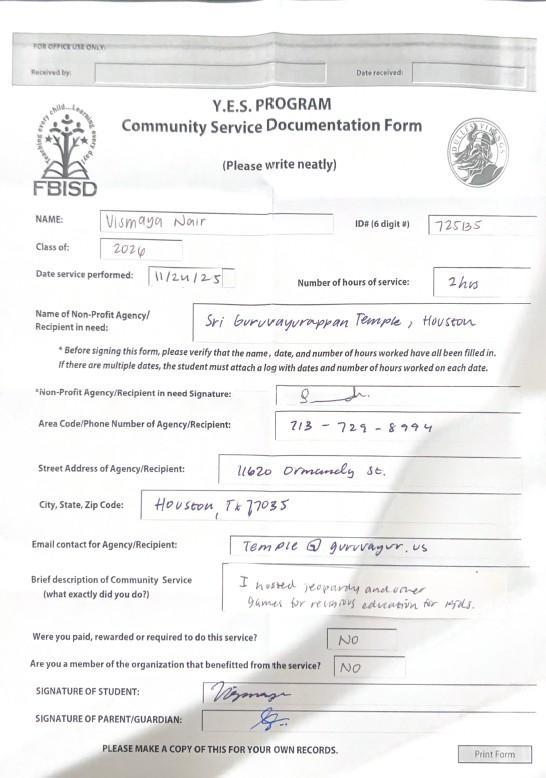 FOR OFFICE USE ONLY:
Received by: Date received:
Teaching every child...Learning every day!
FBISD
Y.E.S. PROGRAM
Community Service Documentation Form
(Please write neatly)
DULLES VIKINGS
NAME: Vismaya Nair ID# (6 digit #) 725135
Class of: 2026
Date service performed: 11/24/25 Number of hours of service: 2hrs
Name of Non-Profit Agency/
Recipient in need: Sri Guruvayurappan Temple, Houston
* Before signing this form, please verify that the name, date, and number of hours worked have all been filled in.
If there are multiple dates, the student must attach a log with dates and number of hours worked on each date.
*Non-Profit Agency/Recipient in need Signature:
Area Code/Phone Number of Agency/Recipient: 713-729-8994
Street Address of Agency/Recipient: 11620 Ormandy St.
City, State, Zip Code: Houston, Tx 77035
Email contact for Agency/Recipient: Temple@guruvayur.us
Brief description of Community Service
(what exactly did you do?)
I hosted jeopardy and other
games for religious education for kids.
Were you paid, rewarded or required to do this service? NO
Are you a member of the organization that benefitted from the service? NO
SIGNATURE OF STUDENT: Vismaya
SIGNATURE OF PARENT/GUARDIAN:
PLEASE MAKE A COPY OF THIS FOR YOUR OWN RECORDS.
Print Form